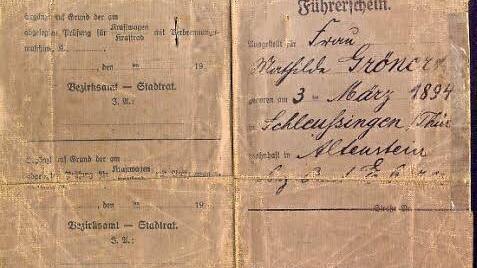 Ergänzt auf Grund der am
abgelegten Prüfung für Kraftwagen Kraftrad mit Verbrennungs-
maschine, Kl.
, den 19
Bezirksamt — Stadtrat.
I. A.:
Ergänzt auf Grund der am
Prüfung für Kraftwagen Kraftrad
, den 19
Bezirksamt — Stadtrat.
I. A.:
Führerschein.
Ausgestellt für Frau
Mathilde Gröner
geboren am 3 ten März 1894
in Schleußingen /Thür
wohnhaft in Altenstein
Straße Nr.